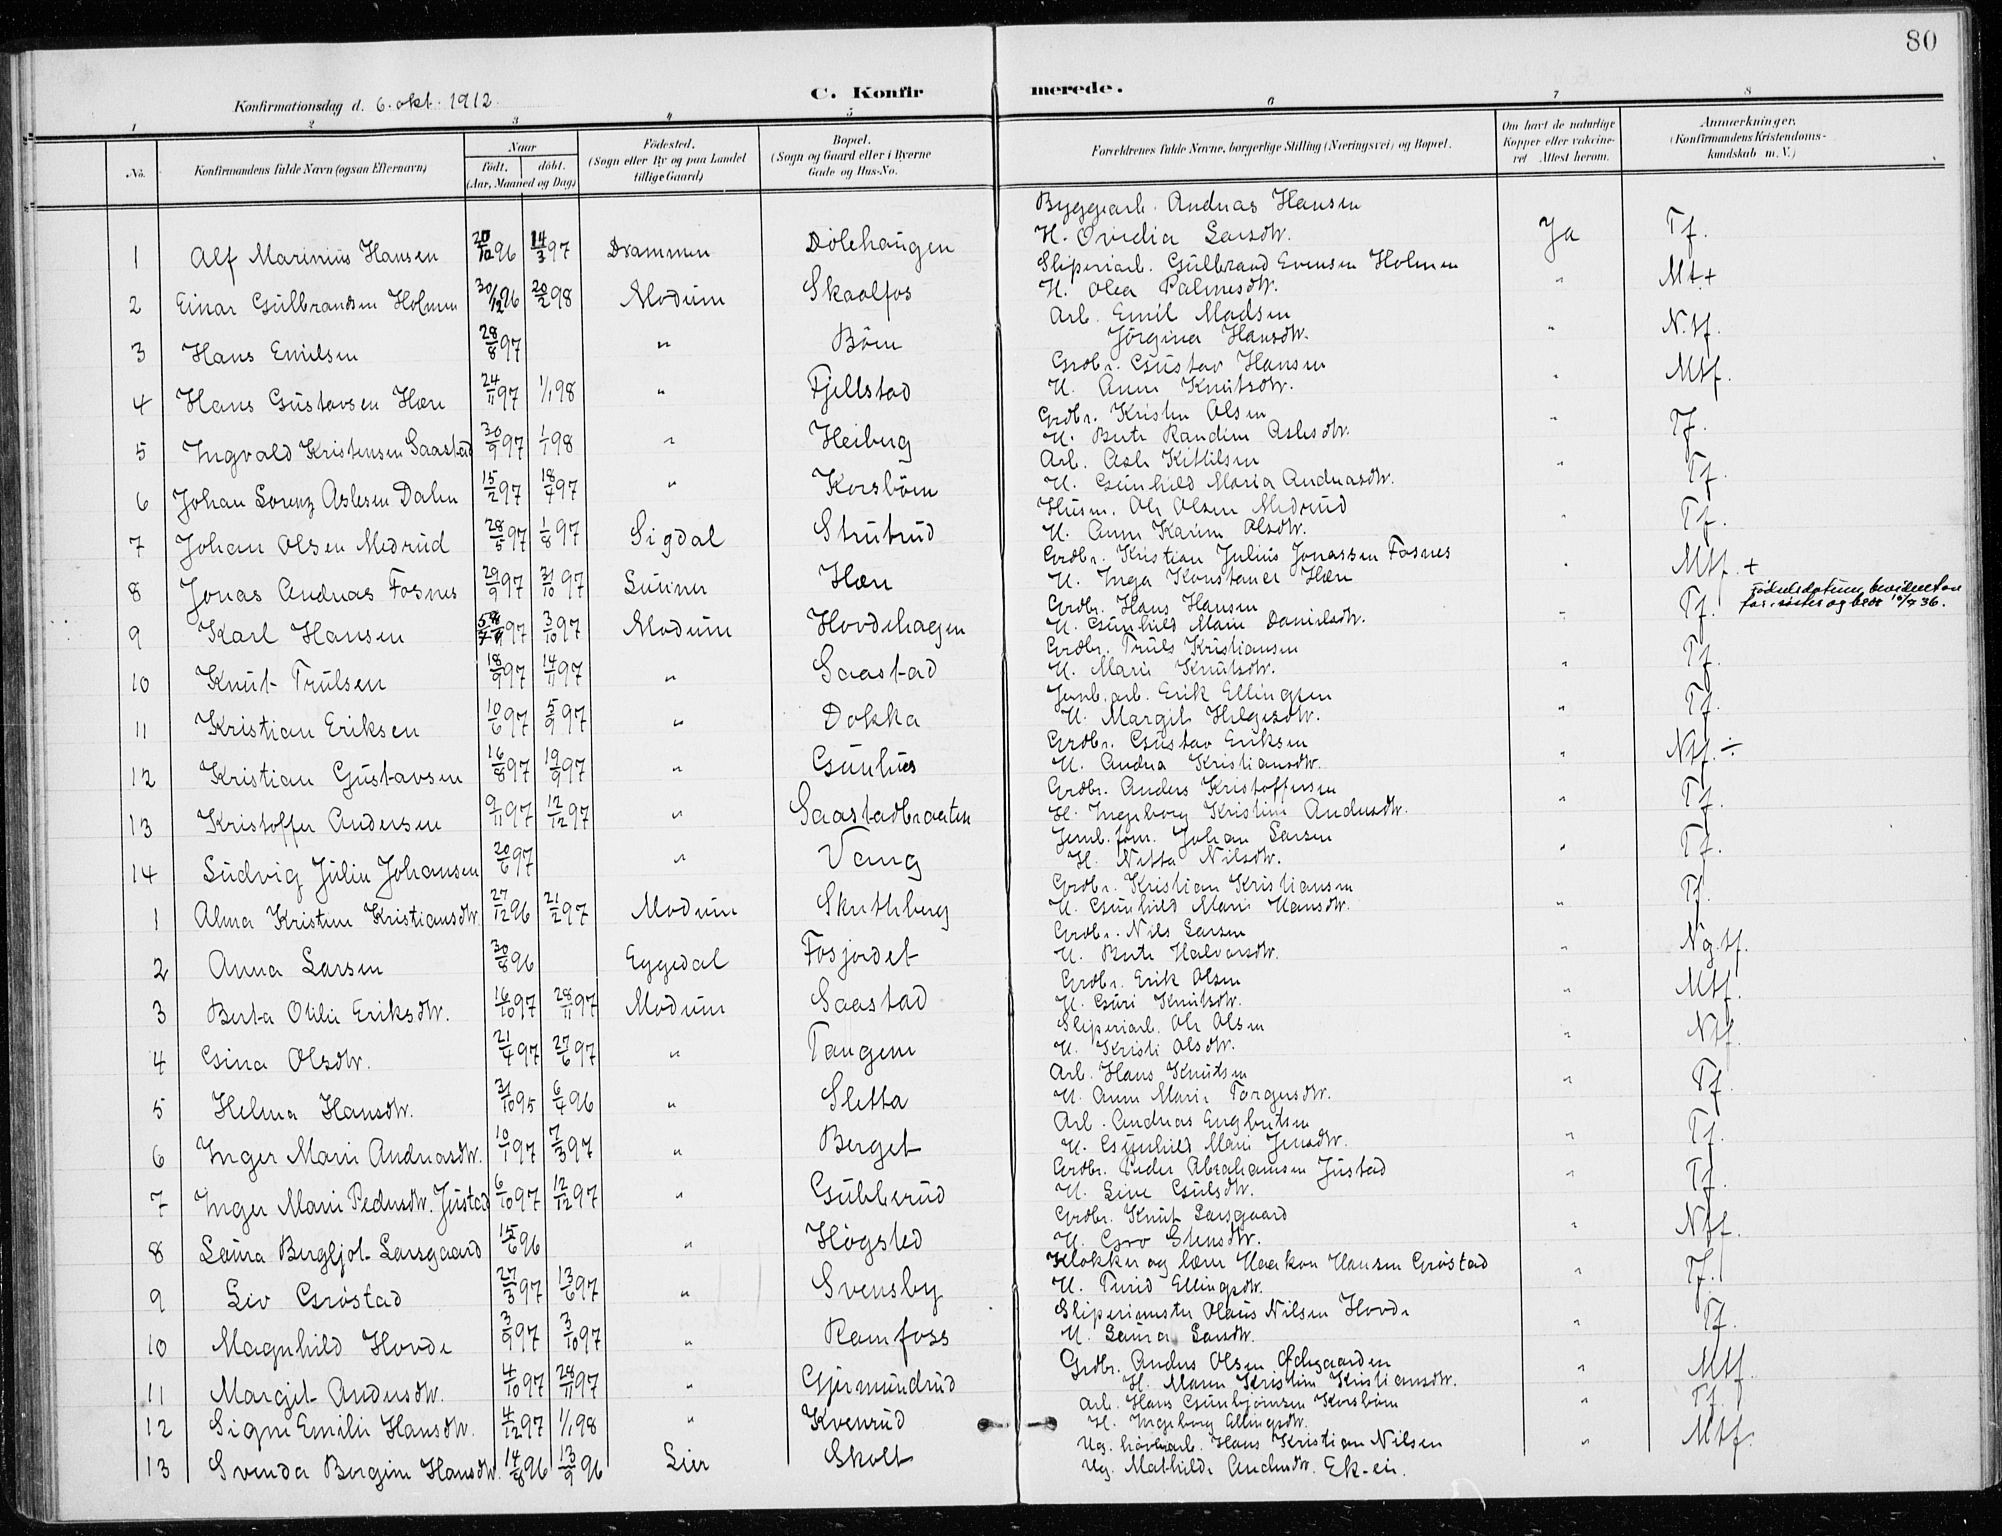 80
C. Konfirmerede.
Konfirmationsdag d. 6. okt. 1912.
1 2 3 4 5 6 7 8
No. Konfirmandens fulde Navn (ogsaa Efternavn) Naar født. døbt. (Aar, Maaned og Dag) Fødested. (Sogn eller By og paa Landet tillige Gaard) Bopæl. (Sogn og Gaard eller i Byerne Gade og Hus-No. Forældrenes fulde Navne, borgerlige Stilling (Næringsvei) og Bopæl. Om havt de naturlige Kopper eller vakcineret Attest herom. Anmærkninger. (Konfirmandens Kristendomskundskab m. V.)
1 Alf Marinius Hansen 20/12 96 14/3 97 Drammen Dölehaugen Byggearb. Andreas Hansen
H. Ovidia Larsdtr. Ja Tf.
2 Einar Gulbrandsen Holmen 30/12 96 20/2 98 Modum Skaalfos Sliperiarb. Gulbrand Evensen Holmen
H. Olea Palmesdtr. " Mt.+
3 Hans Emilsen 28/8 97 " Böen Arb. Emil Madsen
Jörgina Hansdtr. " N.tf.
4 Hans Gustavsen Hæn 24/11 97 1/1 98 " Fjellstad Grdbr. Gustav Hansen
H. Anne Knutsdtr. " Mtf.
5 Ingvald Kristensen Saastad 30/9 97 1/1 98 " Heiberg Grdbr. Kristen Olsen
H. Berte Randine Aslesdtr. " Tf.
6 Johan Lorenz Aslesen Dalen 15/2 97 18/7 97 " Korsböen Arb. Asle Kittilsen
H. Gunhild Maria Andreasdtr. " Tf.
7 Johan Olsen Medrud 28/5 97 1/8 97 Sigdal Strutrud Husm. Ole Olsen Medrud
H. Anne Karine Olsdtr. " Tf.
8 Jonas Andreas Fosnes 29/9 97 31/10 97 Lunner Hæn Grdbr. Kristian Julius Jonassen Fosnes
H. Inga Konstance Hæn " Mtf.+
9 Karl Hansen 97 3/10 97 Modum Hovdehagen Grdbr. Hans Hansen
H. Gunhild Marie Danielsdtr. " Tf. Födselsdatum bevidnet av far, søster og bror 10/7 36.
10 Knut Trulsen 18/9 97 14/11 97 " Saastad Grdbr. Truls Kristiansen
H. Marie Knutsdtr. " Tf.
11 Kristian Eriksen 10/6 97 5/9 97 " Dokka Jernb.arb. Erik Ellingsen
H. Margit Helgesdtr. " Tf.
12 Kristian Gustavsen 16/8 97 19/9 97 " Gunhus Grdbr. Gustav Eriksen
H. Andrea Kristiansdtr. " Ntf. ÷
13 Kristoffer Andersen 9/11 97 12/12 97 " Saastadbraaten Grdbr. Anders Kristoffersen
H. Ingeborg Kristine Andersdtr. " Tf.
14 Ludvig Julin Johansen 20/6 97 " Vang Jernb.fom. Johan Larsen
H. Netta Nilsdtr. " Tf.
1 Alma Kristine Kristiansdtr. 27/12 96 21/2 97 Modum Skuthberg Grdbr. Kristian Kristiansen
H. Gunhild Marie Hansdtr. " Tf.
2 Anna Larsen 30/8 96 Eggedal Fosjordet Grdbr. Nils Larsen
H. Berte Halvorsdtr. " Ng.tf.
3 Berta Otilie Eriksdtr. 16/10 97 28/11 97 Modum Saastad Grdbr. Erik Olsen
H. Guri Knutsdtr. " Mtf.
4 Gina Olsdtr. 21/4 97 27/6 97 " Tangen Sliperiarb. Ole Olsen
H. Kristi Olsdtr. " Ntf.
5 Helma Hansdtr. 31/10 95 6/4 96 " Sletta Arb. Hans Knutsen
H. Anne Marie Torgersdtr. " Tf.
6 Inger Marie Andreasdtr. 10/1 97 7/3 97 " Berget Arb. Andreas Engbretsen
H. Gunhild Marie Jensdtr. " Tf.
7 Inger Marie Pedersdtr. Justad 6/10 97 12/12 97 " Gubberud Grdbr. Peder Abrahamsen Justad
H. Live Gulsdtr. " Tf.
8 Laura Bergljot Larsgaard 15/6 96 " Høgsted Grdbr. Knut Larsgaard
H. Gro Stensdtr. " Ntf.
9 Liv Grøstad 27/3 97 13/6 97 " Svensby Klokker og lærer Haakon Hansen Grøstad
H. Turid Ellingsdtr. " Tf.
10 Magnhild Hovde 3/9 97 3/10 97 " Ramfoss Sliperimester Olaus Nilsen Hovde
H. Laura Larsdtr. " Tf.
11 Margit Andersdtr. 4/10 97 28/11 97 " Gjermundrud Grdbr. Anders Olsen Ødegaarden
H. Maren Kristine Kristiansdtr. " Mtf.
12 Signe Emilie Hansdtr. 4/12 97 1/1 98 " Kvenrud Arb. Hans Gunbjörnsen Korsböen
H. Ingeborg Ellingsdtr. " Tf.
13 Svenda Bergine Hansdtr. 14/8 96 13/9 96 Lier Skolt Ug. Hans Kristian Nilsen
Ug. Mathilde Andersdtr. Ek-eie. " Mtf.